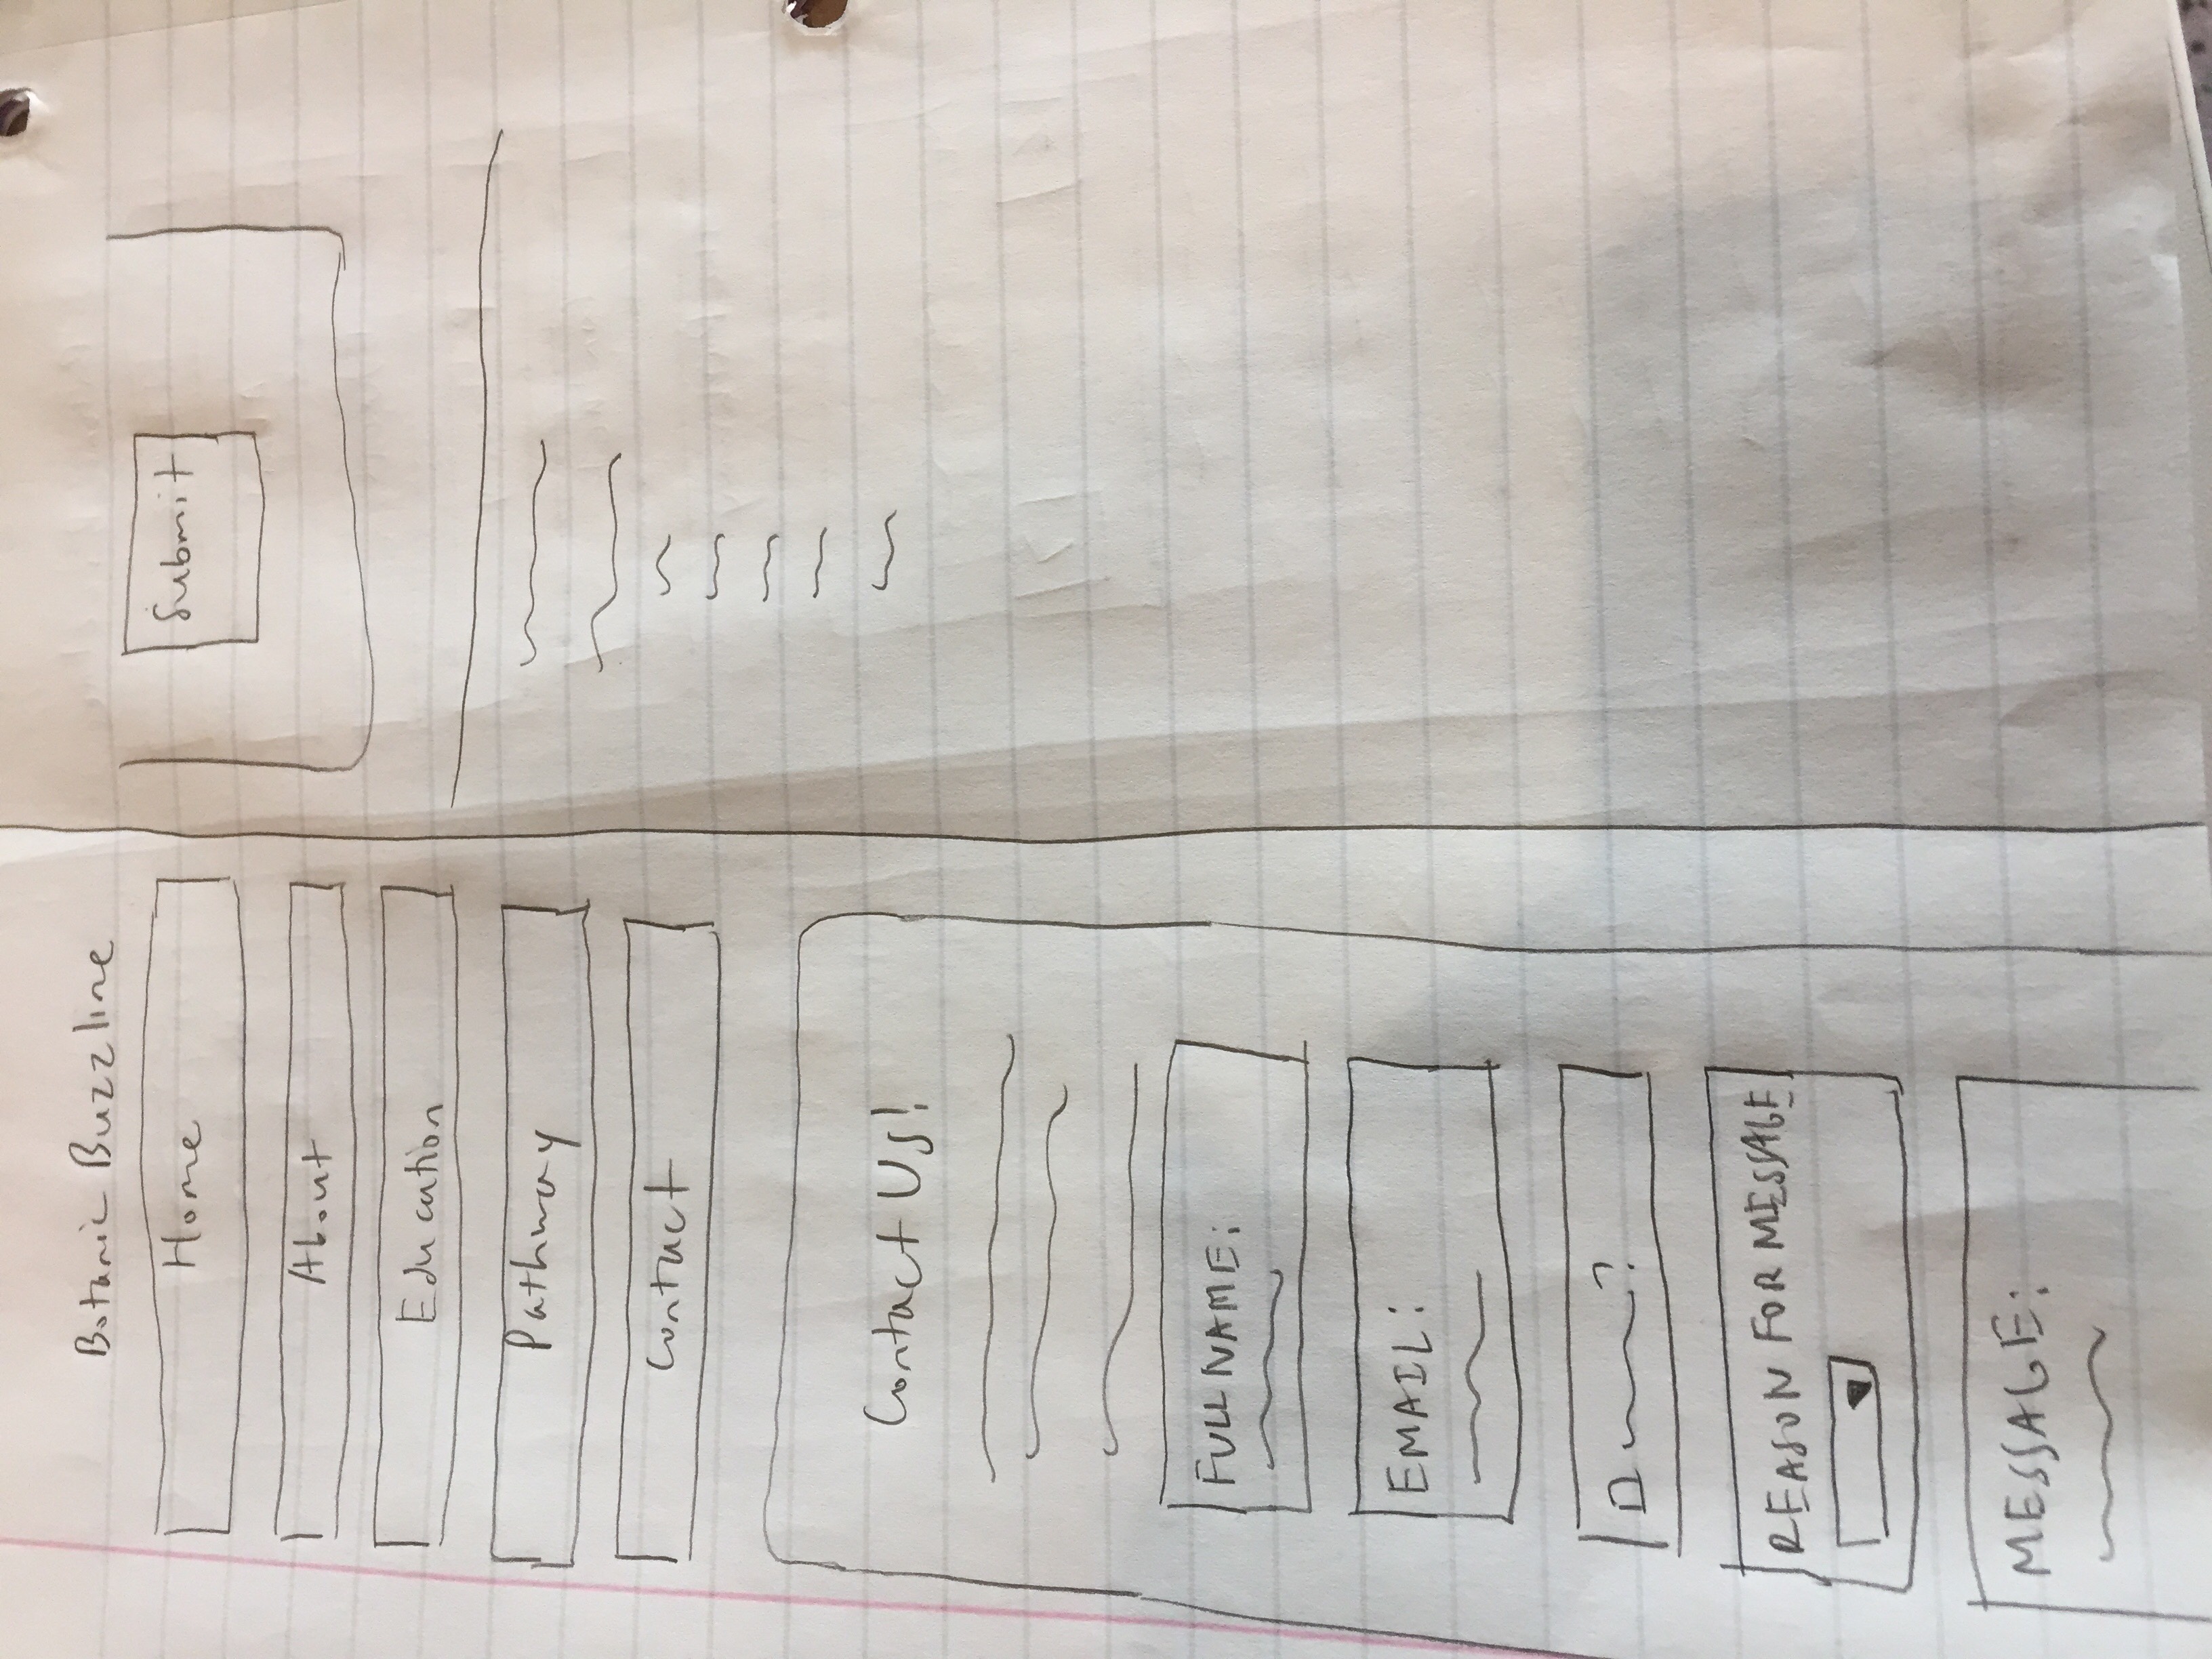 Botanic Buzzline
Home
About
Education
Pathway
Contact
Contact Us!
FULL NAME:
EMAIL:
?
REASON FOR MESSAGE
MESSAGE:
Submit